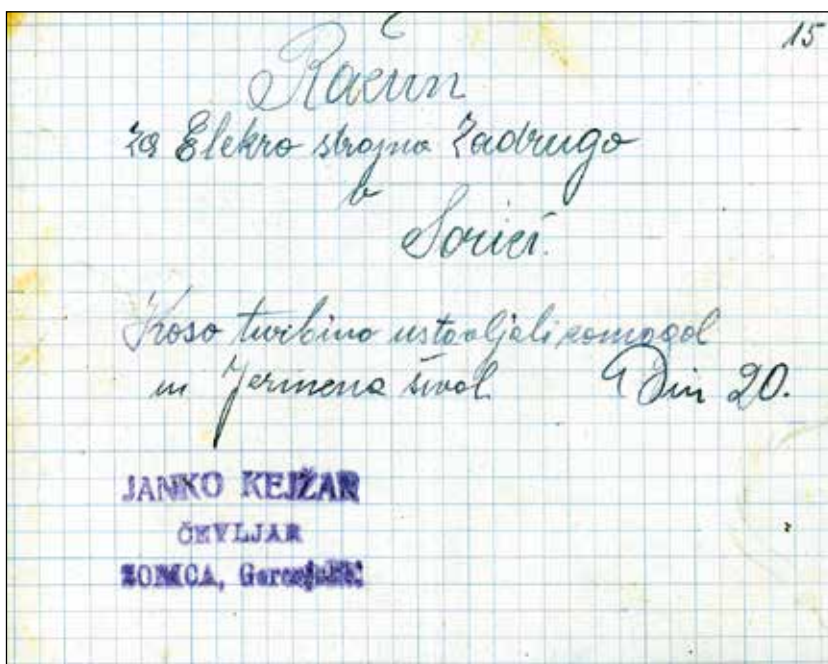 15
Račun
za Elekro strojno Zadrugo
v
Sorici.
Koso turbino ustavljali pomagal
in Jermena šival Din 20.
JANKO KEJŽAR
ČEVLJAR
SORICA, Gorenjsko